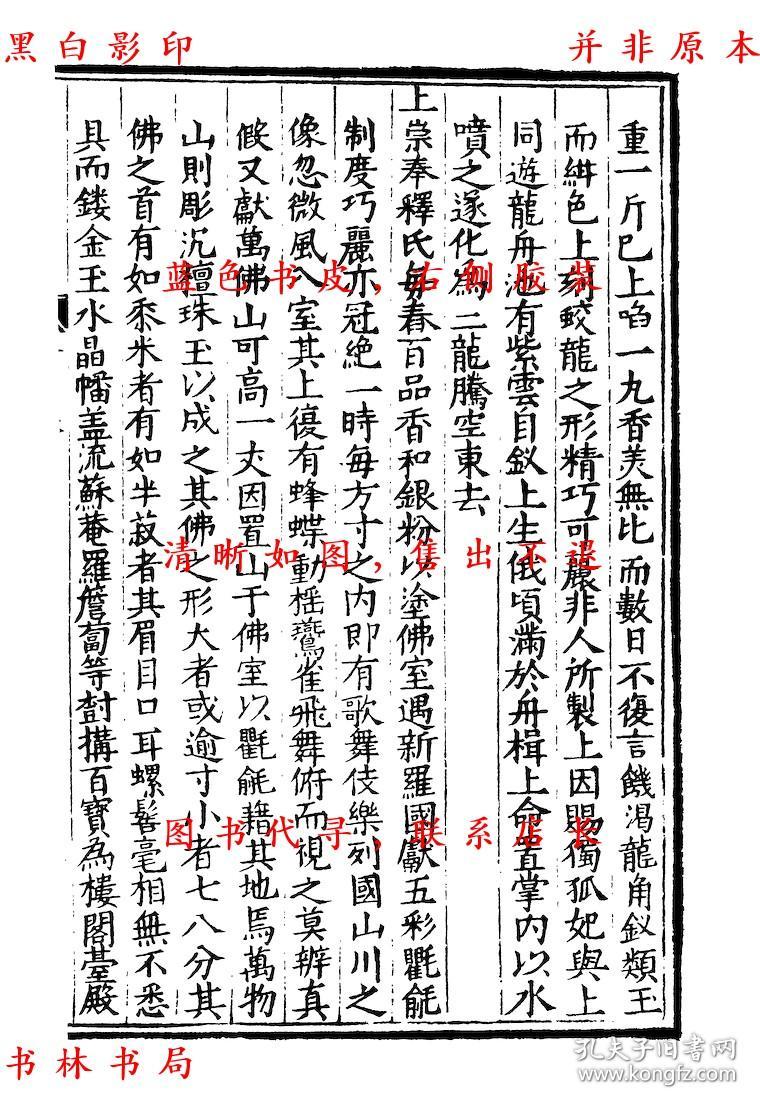 黑白影印
并非原本
重一斤巳上啗一丸香美無比而數日不復言饑渴龍角釵類玉
而紺色上刻蛟龍之形精巧可麗非人所製上因賜獨孤妃與上
同遊龍舟池有紫雲自釵上生俄頃滿於舟楫上命置掌内以水
噴之遂化為二龍騰空東去
上崇奉釋氏每春百品香和銀粉以塗佛室遇新羅國獻五彩氍毹
制度巧麗亦冠絶一時每方寸之内即有歌舞伎樂列國山川之
像忽微風入室其上復有蜂蝶動揺鷰雀飛舞俯而視之莫辨真
假又獻萬佛山可高一丈因置山于佛室以氍毹藉其地焉萬物
山則彫沉檀珠玉以成之其佛之形大者或逾寸小者七八分其
佛之首有如黍米者有如半菽者其眉目口耳螺髻毫相無不悉
具而鏤金玉水晶幡盖流蘇菴羅薝蔔等樹搆百寳為樓閣臺殿
蓝色书皮，右侧胶装
清晰如图，售出不退
图书代寻，联系店长
书林书局
孔夫子旧书网
www.kongfz.com